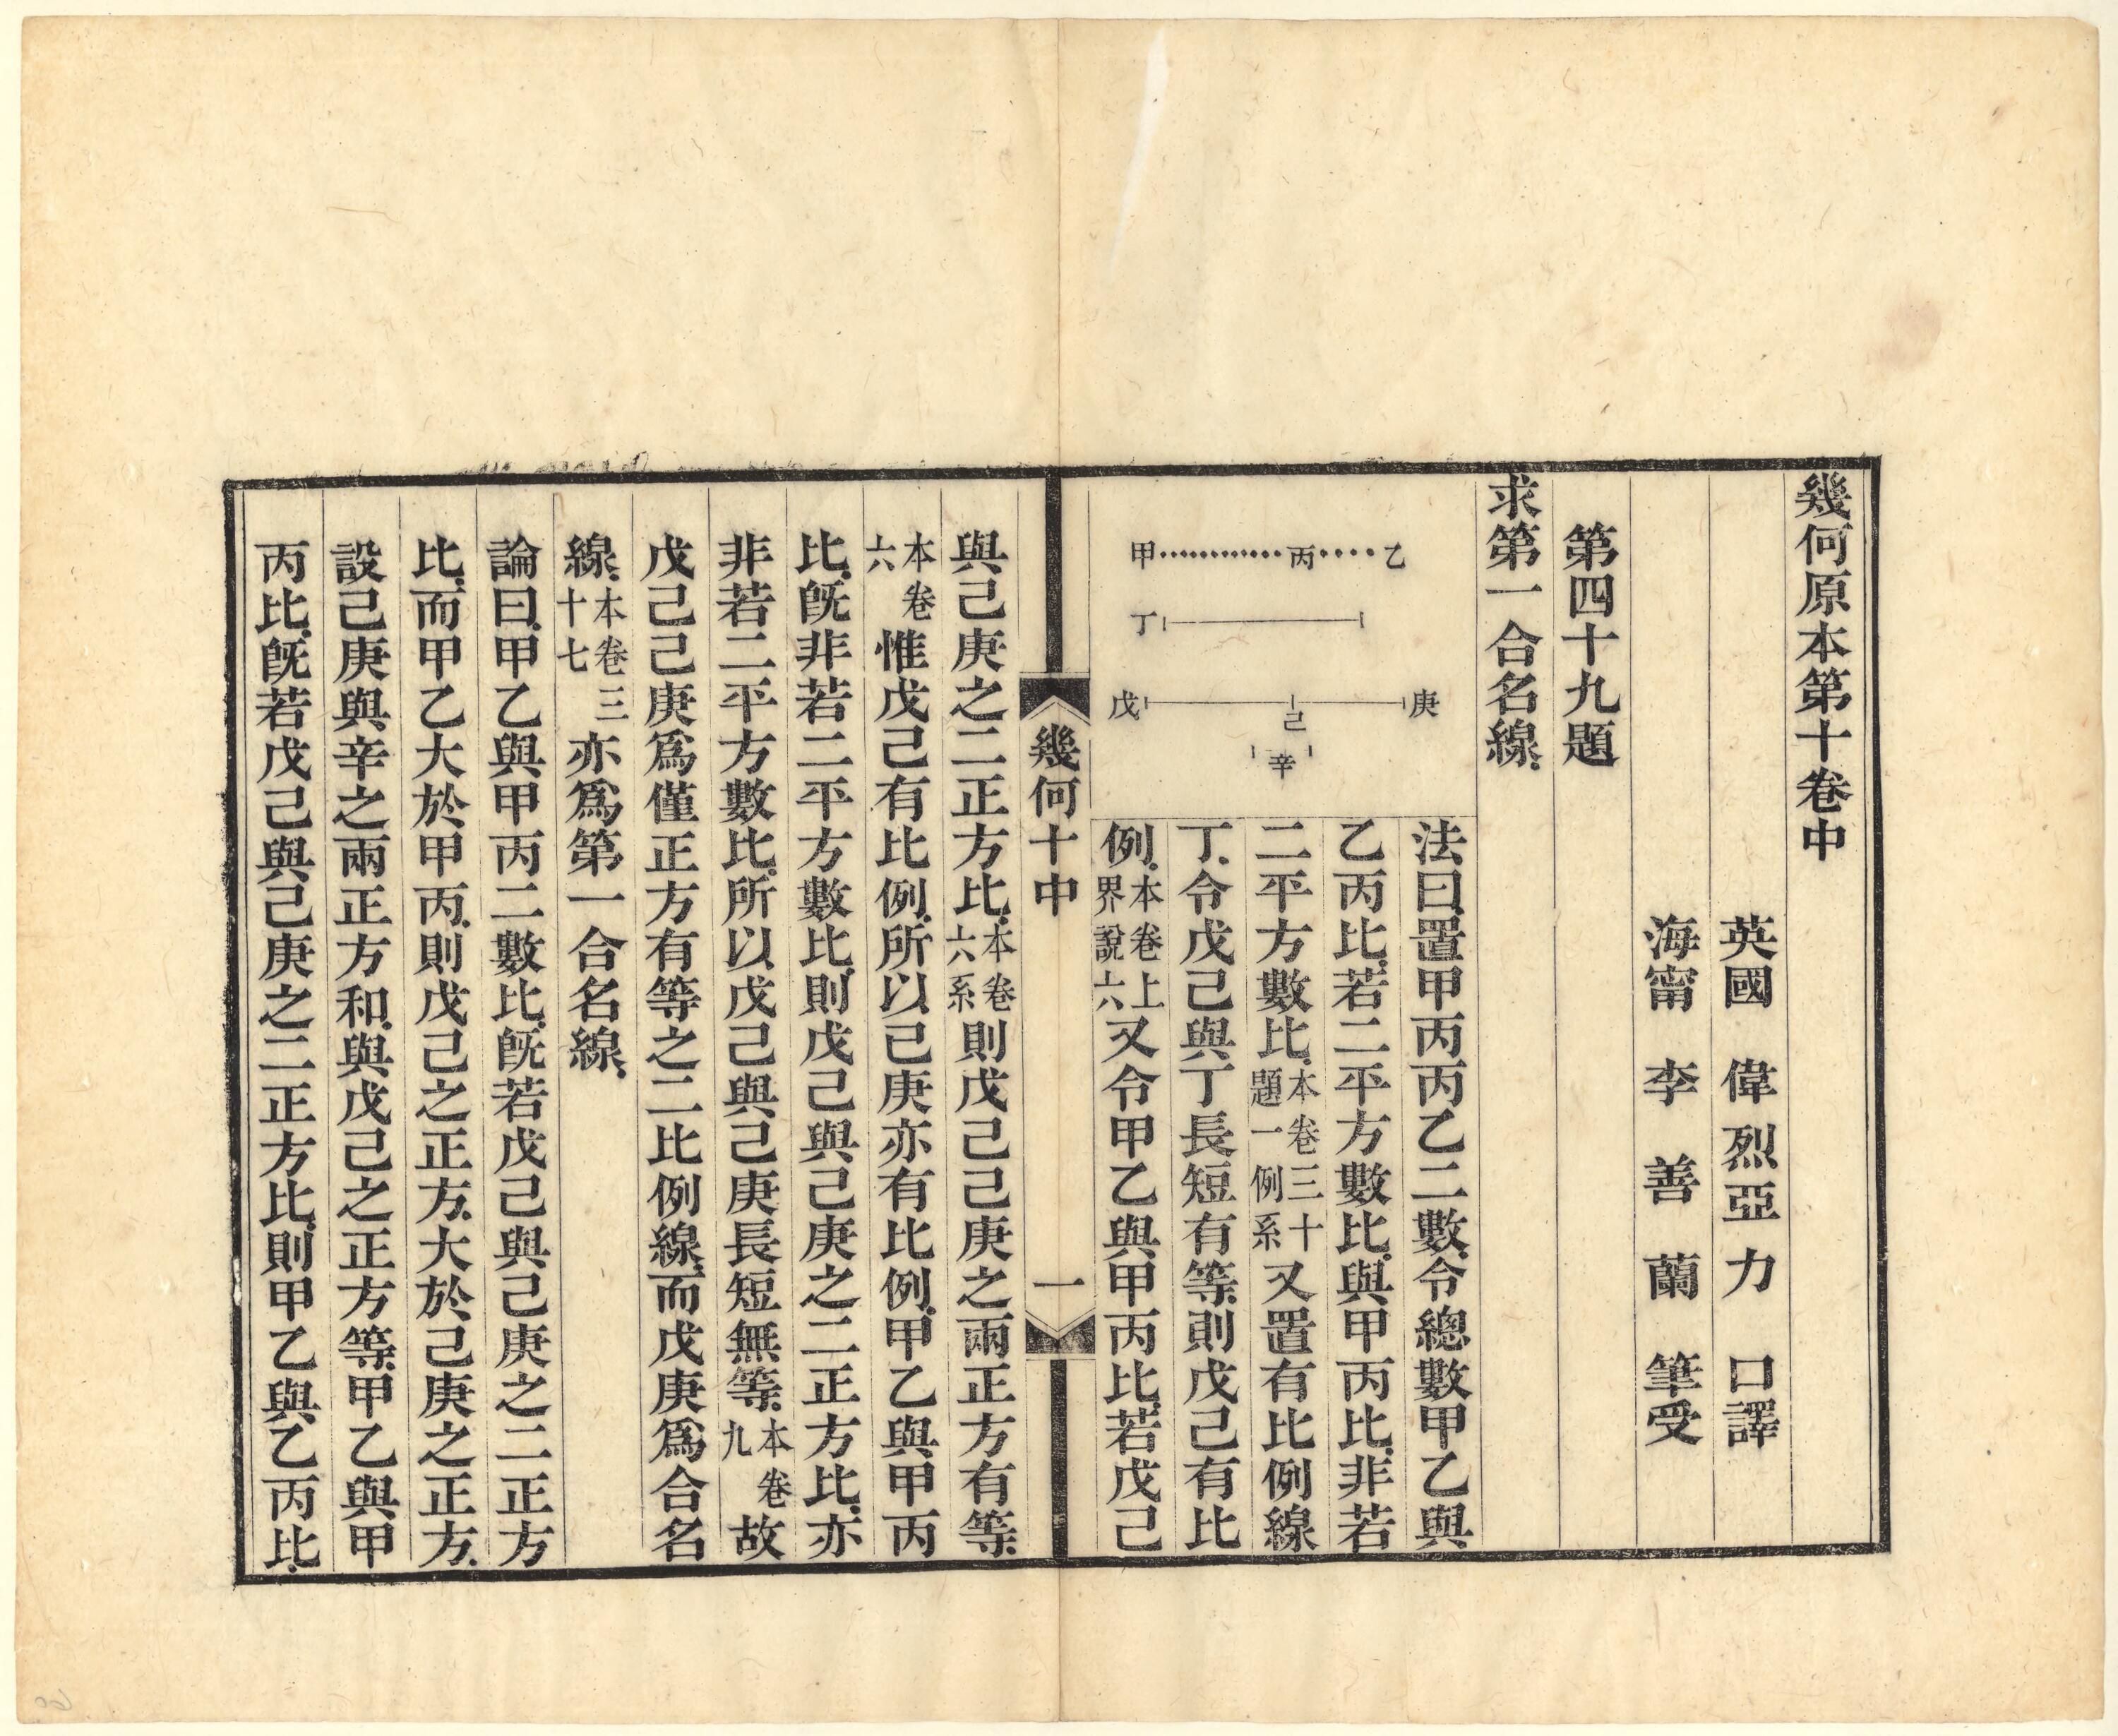 幾何原本第十卷中
英國　偉烈亞力　口譯
海甯　李善蘭　筆受
第四十九題
求第一合名線.
法曰.置甲丙丙乙二數.令總數甲乙與
乙丙比.若二平方數比.與甲丙比.非若
二平方數比.本卷三十題一例系又置有比例線
丁.令戊己與丁長短有等.則戊己有比
例.本卷上界說六又令甲乙與甲丙比.若戊己
甲丙乙
丁
戊己庚
辛
幾何十中
一
與己庚之二正方比.本卷六系則戊己己庚之兩正方有等.
本卷六惟戊己有比例.所以己庚亦有比例.甲乙與甲丙
比.旣非若二平方數比.則戊己與己庚之二正方比.亦
非若二平方數比.所以戊己與己庚長短無等.本卷九故
戊己己庚爲僅正方有等之二比例線.而戊庚爲合名
線.本卷三十七亦爲第一合名線.
論曰.甲乙與甲丙二數比.旣若戊己與己庚之二正方
比.而甲乙大於甲丙.則戊己之正方.大於己庚之正方.
設己庚與辛之兩正方和.與戊己之正方等.甲乙與甲
丙比.旣若戊己與己庚之二正方比.則甲乙與乙丙比.